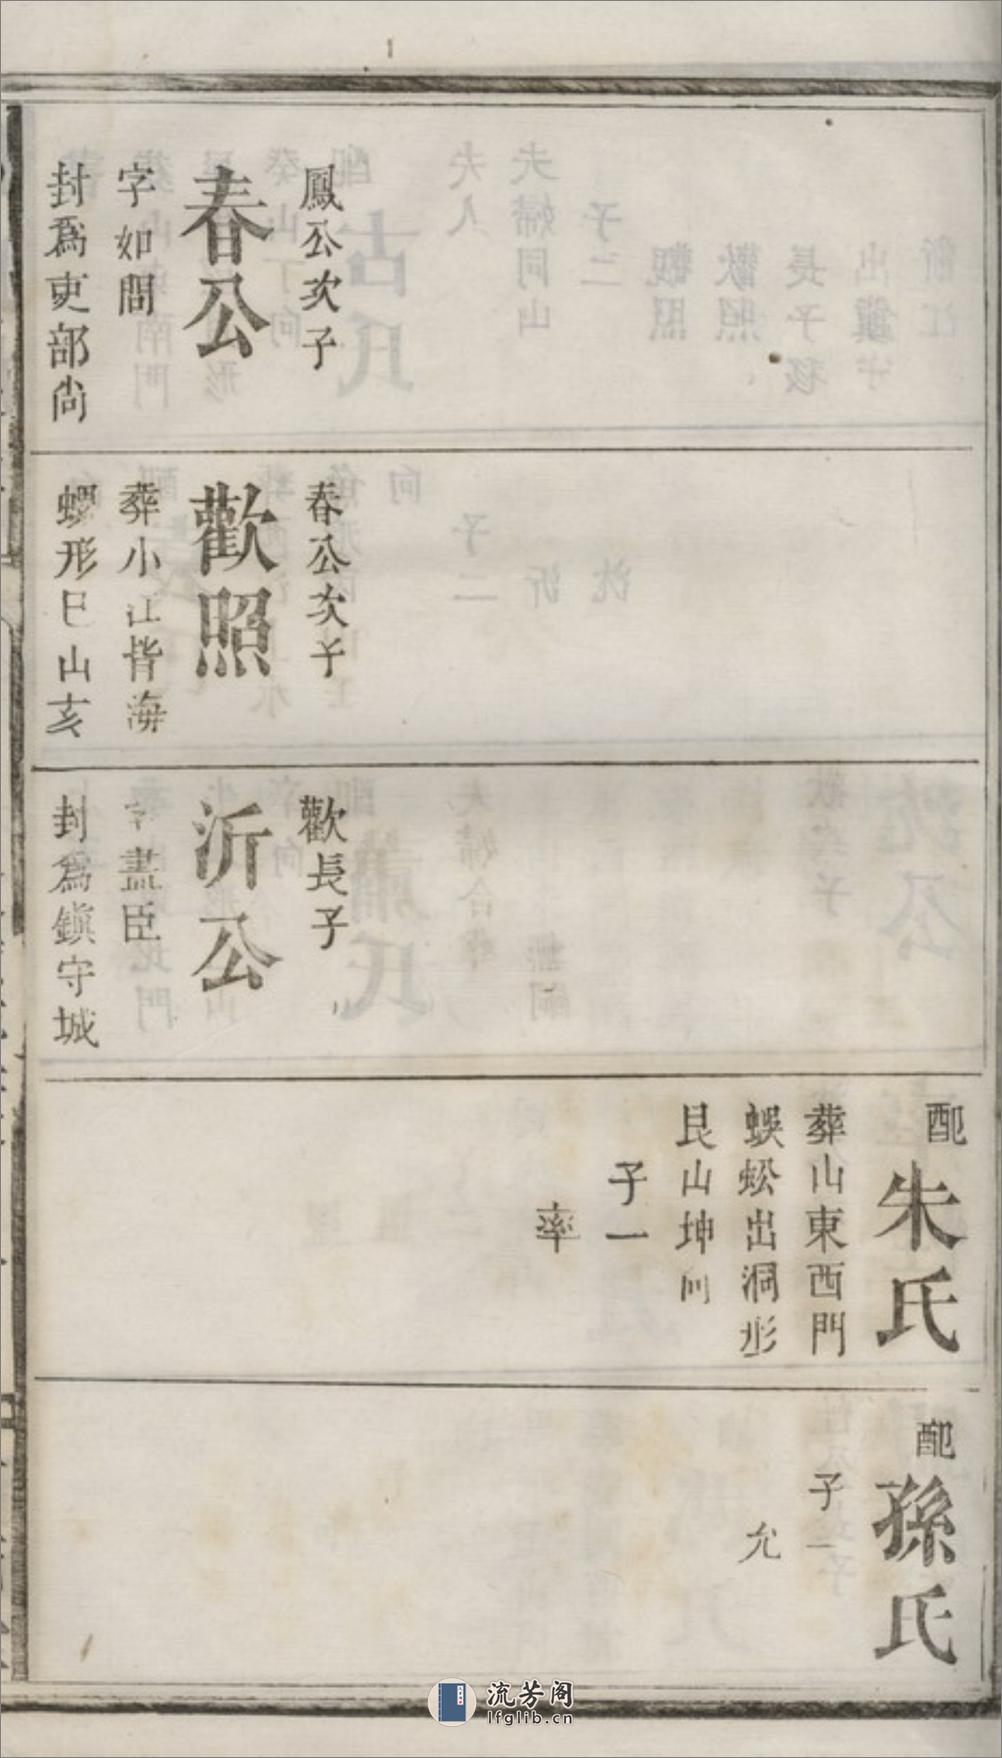 鳳公次子
春公
字如間
封爲吏部尚
春公次子
歡照
葬小江背海
螺形巳山亥
歡長子
沂公
字盡臣
封爲鎮守城
配朱氏
葬山東西門
蜈蚣出洞形
艮山坤向
子一
率
配孫氏
子一
允
流芳阁
lfglib.cn